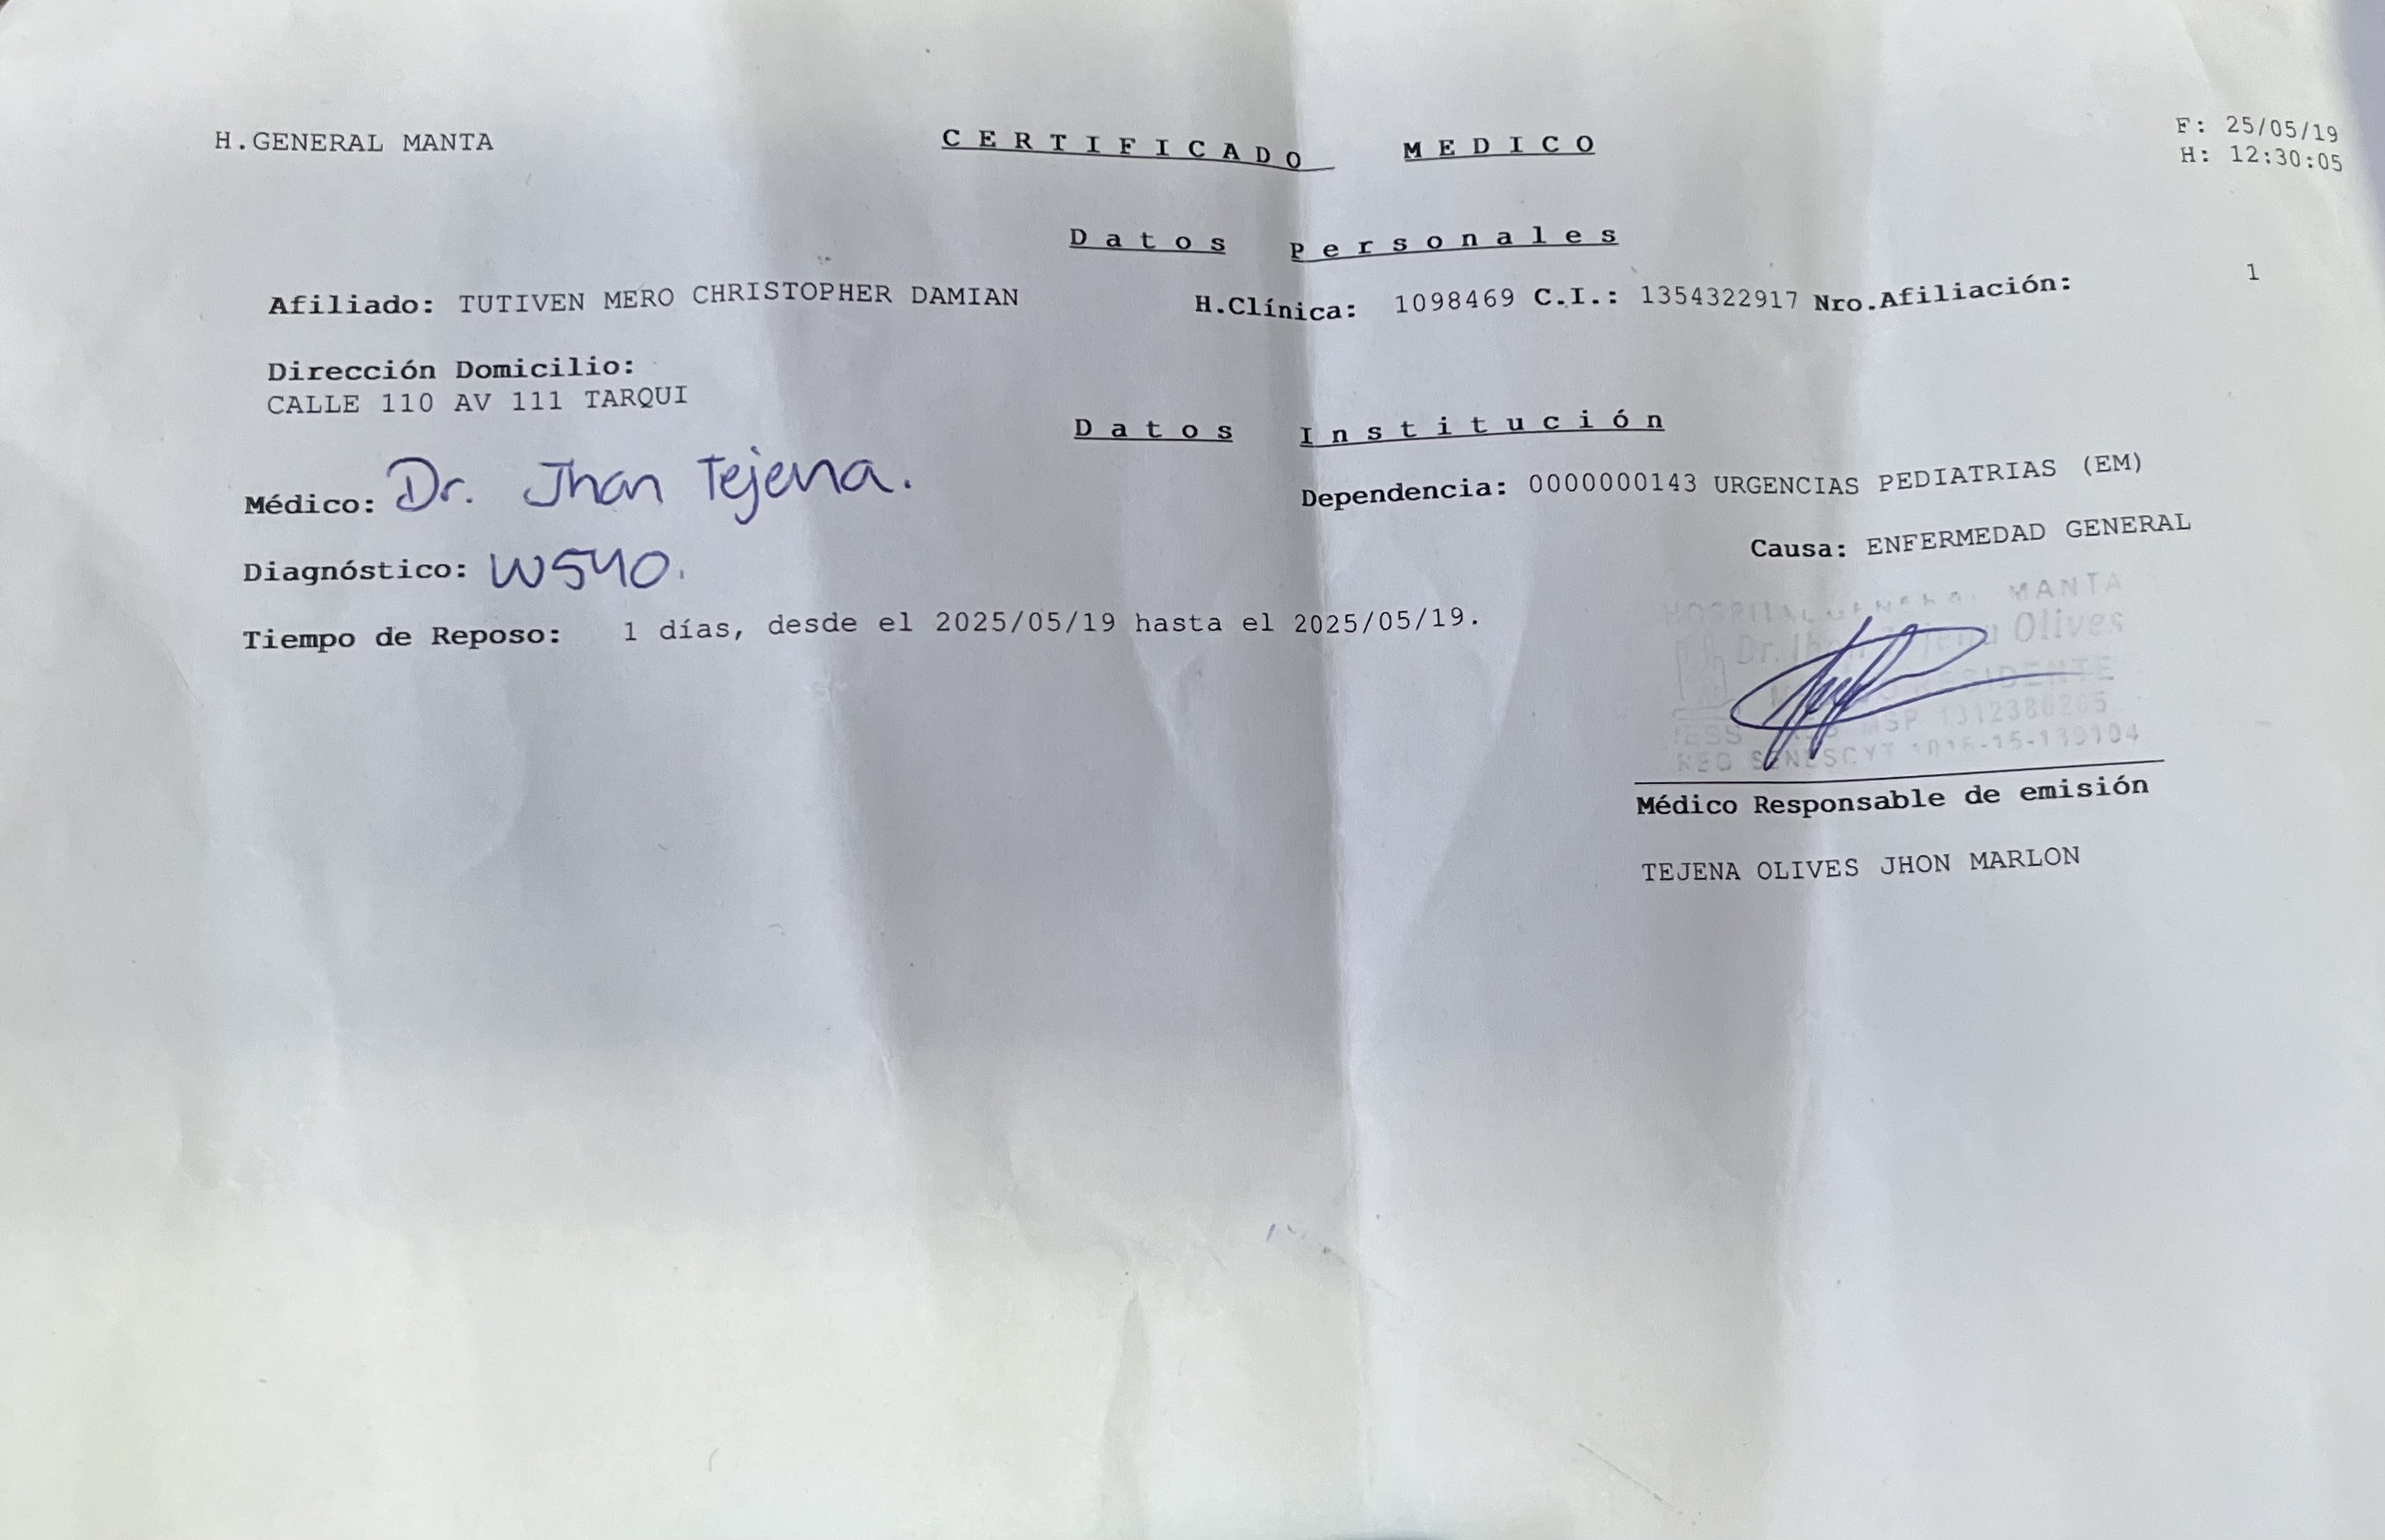 H.GENERAL MANTA CERTIFICADO MEDICO F: 25/05/19
H: 12:30:05
Datos Personales
Afiliado: TUTIVEN MERO CHRISTOPHER DAMIAN H.Clínica: 1098469 C.I.: 1354322917 Nro.Afiliación: 1
Dirección Domicilio:
CALLE 110 AV 111 TARQUI
Datos Institución
Médico: Dr. Jhon Tejena. Dependencia: 0000000143 URGENCIAS PEDIATRIAS (EM)
Diagnóstico: W540. Causa: ENFERMEDAD GENERAL
Tiempo de Reposo: 1 días, desde el 2025/05/19 hasta el 2025/05/19.
HOSPITAL GENERAL MANTA
Dr. Olives
IESS MSP
REG SENESCYT
Médico Responsable de emisión
TEJENA OLIVES JHON MARLON